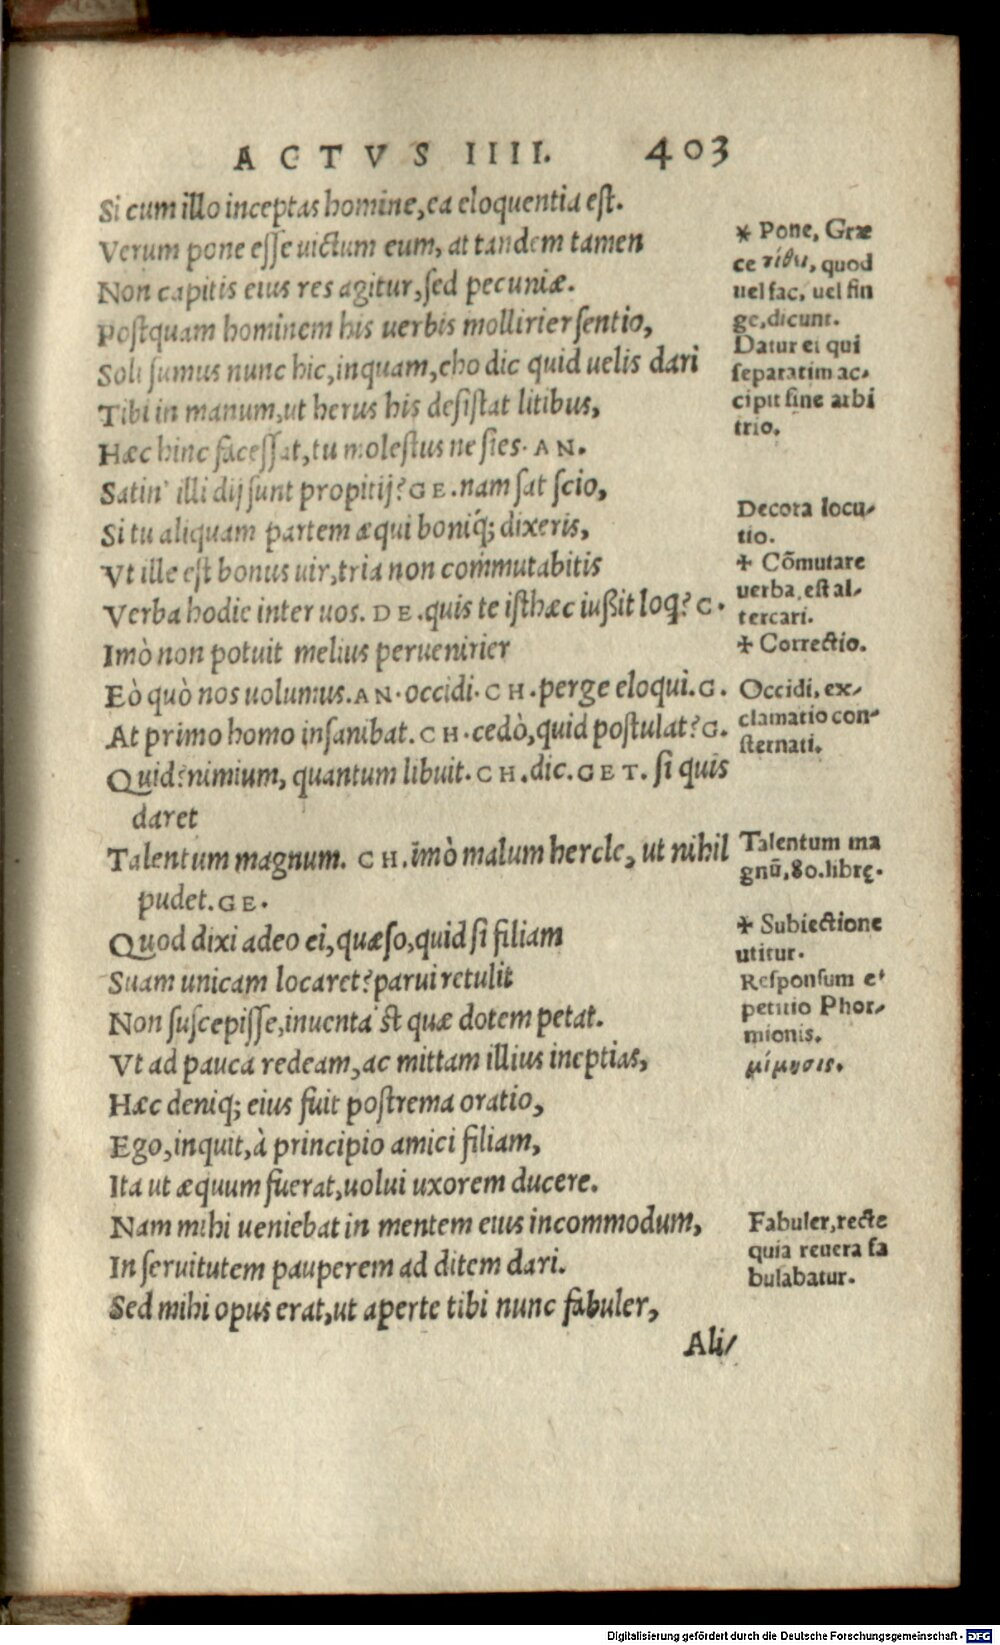 ACTVS IIII. 403
Si cum illo inceptas homine, ea eloquentia est.
Verum pone esse uictum eum, at tandem tamen
Non capitis eius res agitur, sed pecuniæ.
Postquam hominem his uerbis mollirier sentio,
Soli sumus nunc hic, inquam, eho dic quid uelis dari
Tibi in manum, ut herus his desistat litibus,
Hæc hinc facessat, tu molestus ne sies. AN.
Satin' illi dij sunt propitij? GE. nam sat scio,
Si tu aliquam partem æqui boniq́; dixeris,
Vt ille est bonus uir, tria non commutabitis
Verba hodie inter uos. DE. quis te isthæc iußit loq̃? C.
Imò non potuit melius peruenirier
Eò quò nos uolumus. AN. occidi. CH. perge eloqui. G.
At primo homo insanibat. CH. cedò, quid postulat? G.
Quid? nimium, quantum libuit. CH. dic. GET. si quis
daret
Talentum magnum. CH. imò malum hercle, ut nihil
pudet. GE.
Quod dixi adeo ei, quæso, quid si filiam
Suam unicam locaret? parui retulit
Non suscepisse, inuenta 'st quæ dotem petat.
Vt ad pauca redeam, ac mittam illius ineptias,
Hæc deniq; eius fuit postrema oratio,
Ego, inquit, à principio amici filiam,
Ita ut æquum fuerat, uolui uxorem ducere.
Nam mihi ueniebat in mentem eius incommodum,
In seruitutem pauperem ad ditem dari.
Sed mihi opus erat, ut aperte tibi nunc fabuler,
Ali/
* Pone, Græ
ce τίθει, quod
uel fac, uel fin
ge, dicunt.
Datur ei qui
separatim ac-
cipit sine arbi
trio.
Decora locu-
tio.
✢ Cõmutare
uerba, est al-
tercari.
✢ Correctio.
Occidi, ex-
clamatio con-
sternati.
Talentum ma
gnũ, 80. librę.
✢ Subiectione
utitur.
Responsum et
petitio Phor-
mionis.
μίμησις.
Fabuler, recte
quia reuera fa
bulabatur.
Digitalisierung gefördert durch die Deutsche Forschungsgemeinschaft - DFG